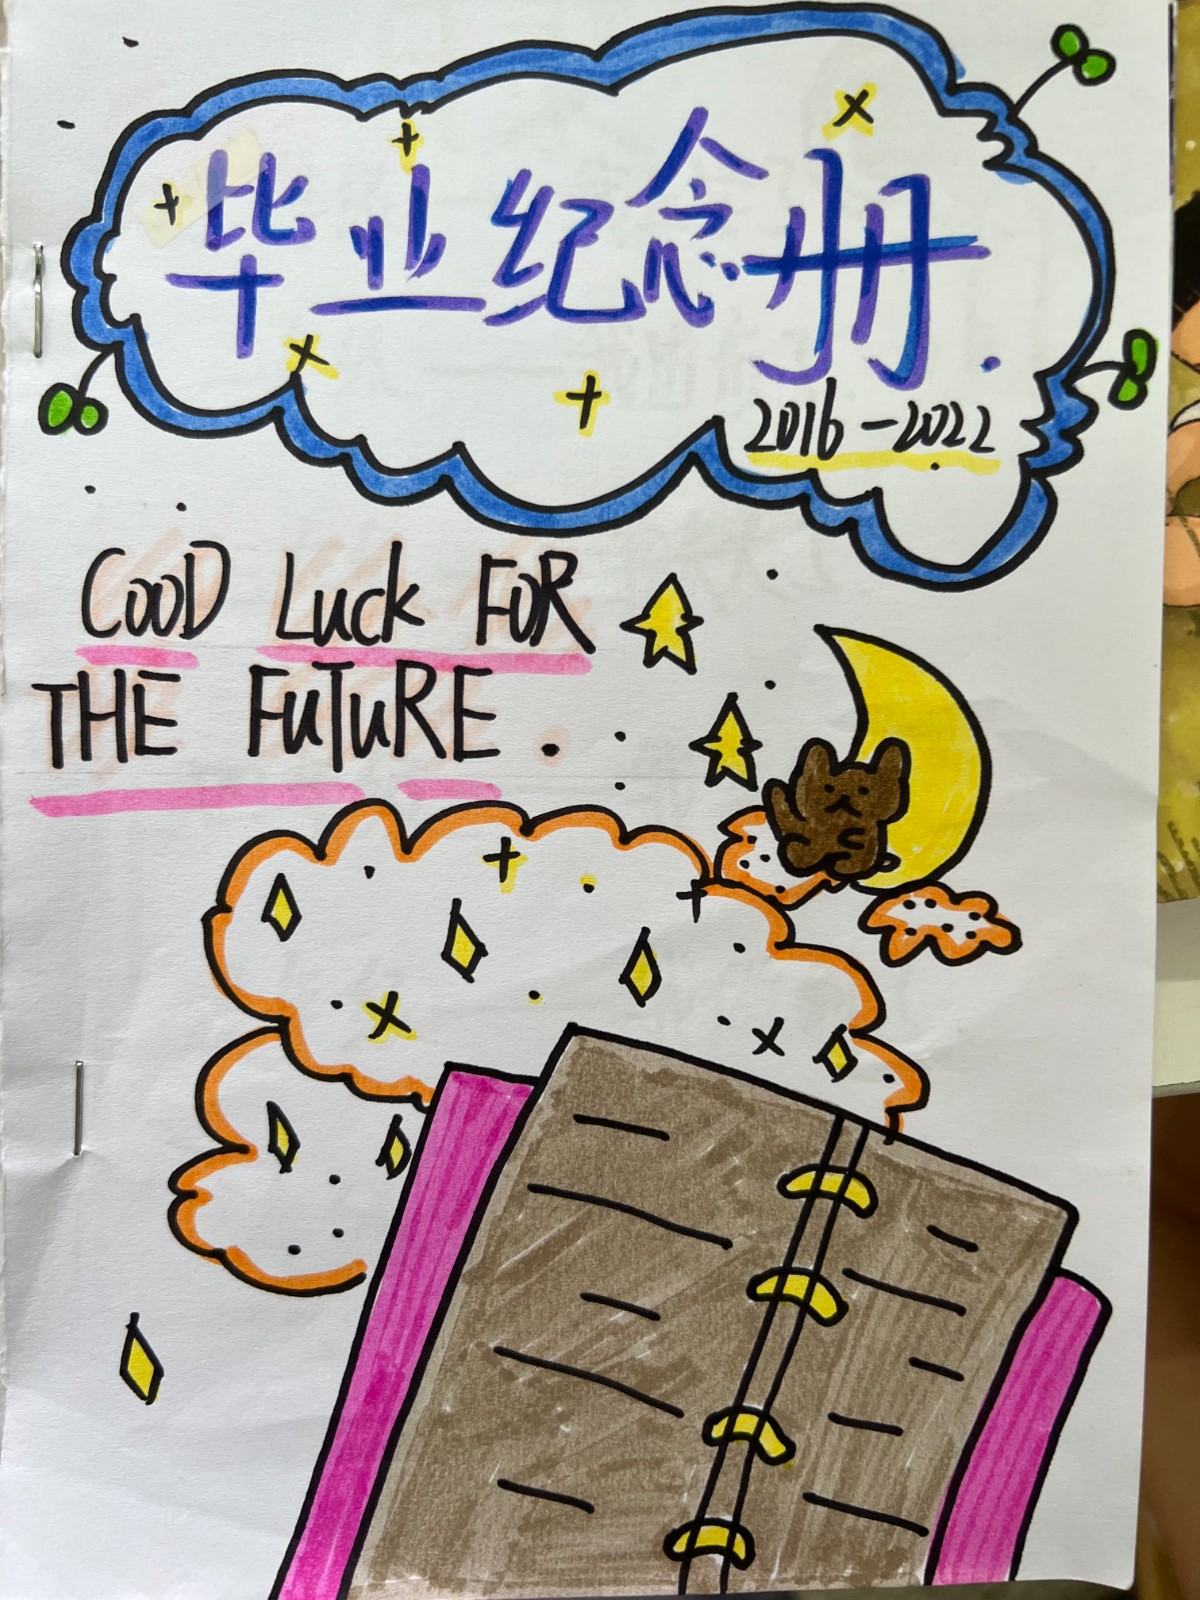 毕业纪念册.
2016-2022
GOOD Luck FOR
THE FuTuRE.